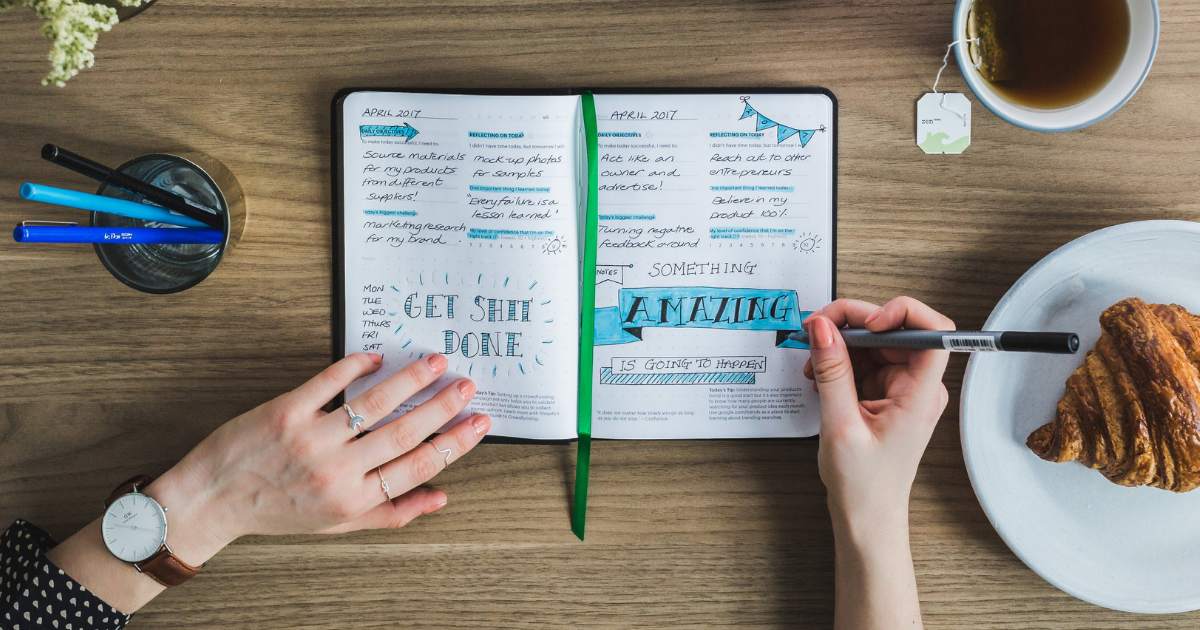 APRIL 2017
DAILY OBJECTIVES
To make today successful, I need to:
Source materials
for my products
from different
suppliers!
Today's biggest challenge
marketing research
for my brand.
REFLECTING ON TODAY
I didn't have time today, but tomorrow I will
mock-up photos
for samples
One important thing I learned today
"Every failure is a
lesson learned"
My level of confidence that I'm on the
right track
1 2 3 4 5 6 7 8
MON
TUE
WED
THURS
SAT
GET SHIT
DONE
Today's Tip: Setting up a crowdfunding
campaign not only helps you to validate
your product but allows you to collect
Guide to Crowdfunding.
APRIL 2017
DAILY OBJECTIVES
To make today successful, I need to:
Act like an
owner and
advertise!
Today's biggest challenge
Turning negative
feedback around
REFLECTING ON TODAY
I didn't have time today, but tomorrow I
Reach out to other
entrepreneurs
One important thing I learned today
Believe in my
product 100%.
My level of confidence that I'm on the
right track
1 2 3 4 5 6 7 8
NOTES
SOMETHING
AMAZING
IS GOING TO HAPPEN
"It does not matter how slowly you go as long
as you do not stop." - Confucius
Today's Tip: Understanding your product's
trend is a good start but it's also important
to know how many people are currently
searching for your product idea each month.
Use google.com/trends as a place to start
learning about trending searches.